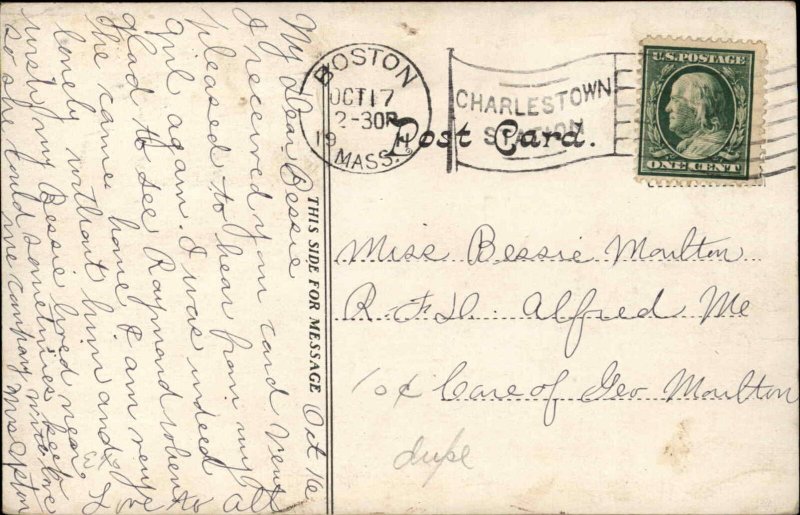 My Dear Bessie Oct 16
I received your card very
pleased to hear from my
girl again. I was indeed
glad to see Raymond when
he came home I am very
lonely without him and I
wish my Bessie lived near
so she could sometimes keep
me company with love
Mrs Upton
THIS SIDE FOR MESSAGE
BOSTON
OCT 17
2-30P
19
MASS.
CHARLESTOWN
STATION
Post Card.
U.S. POSTAGE
ONE CENT
Miss Bessie Moulton
R.F.D. Alfred Me
10¢ Care of Geo Moulton
dupe